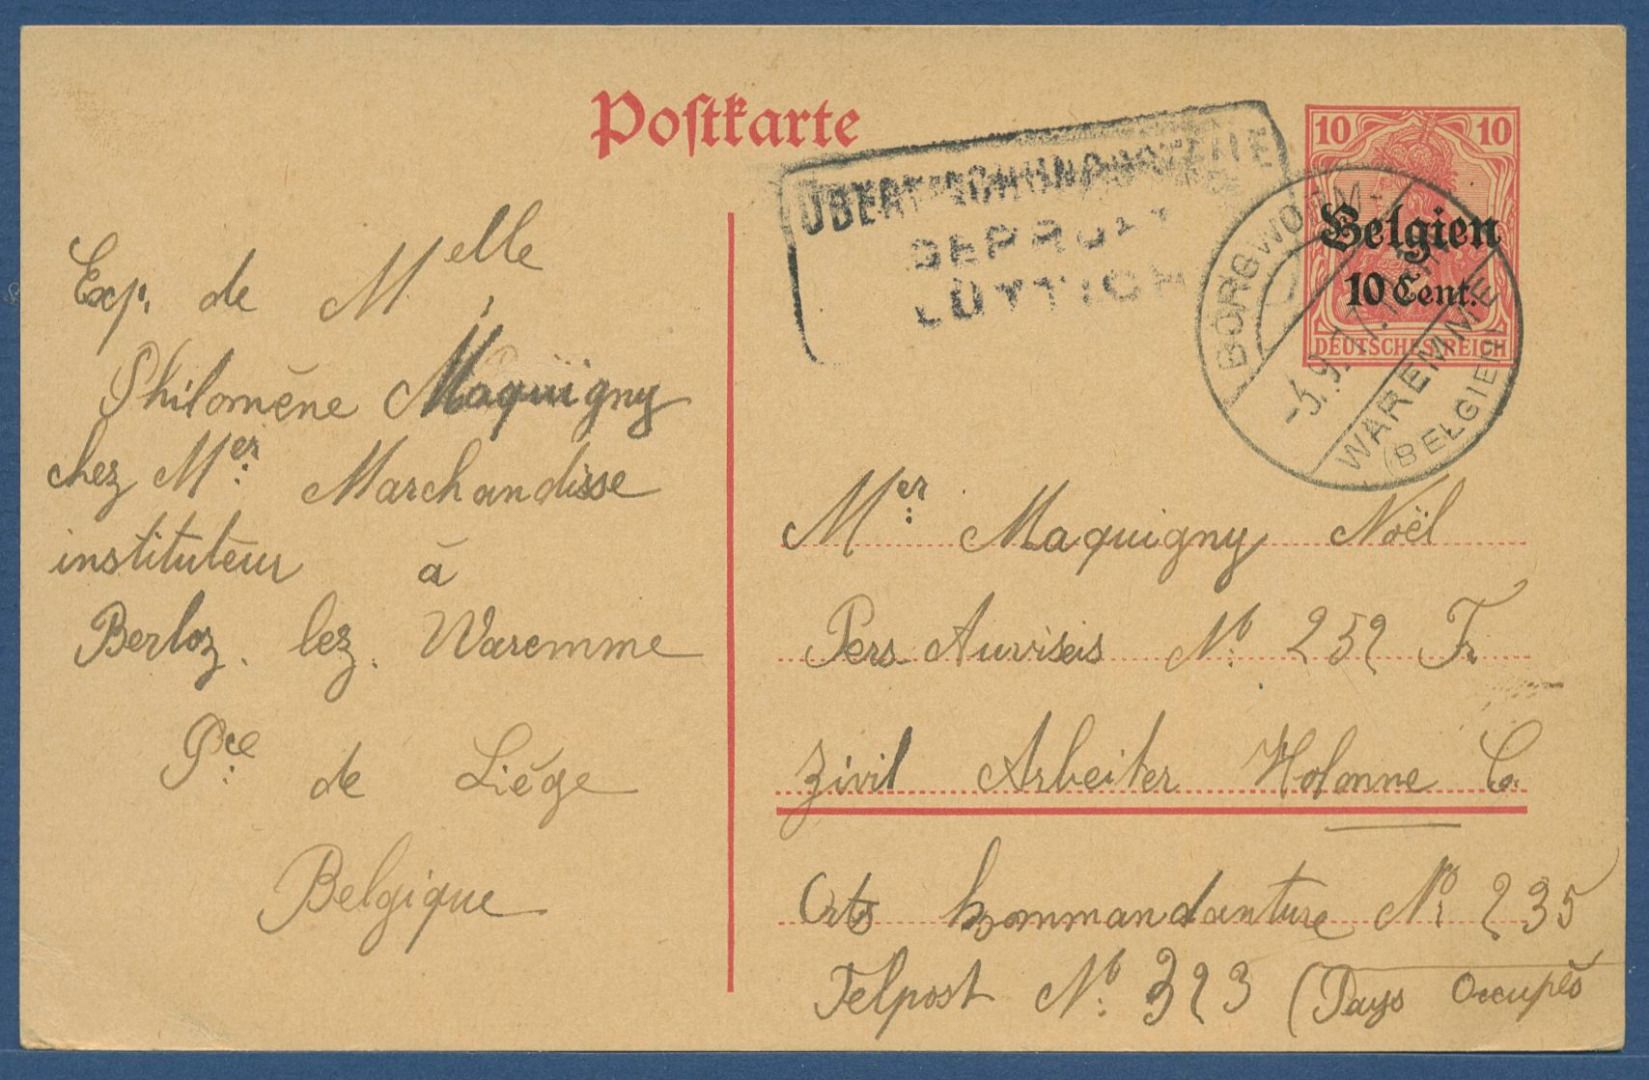 Postkarte
ÜBERWACHUNGSSTELLE
GEPRÜFT
LÜTTICH
10 10
Belgien
10 Cent.
DEUTSCHES REICH
BORGWORM
WAREMME
(BELGIEN)
Exp. de Melle
Philomène Maquigny
chez Mer Marchandisse
instituteur à
Berloz. lez. Waremme
Pce de Liége
Belgique
Mer Maquigny Noël
Pers No 252 Fr
Zivil Arbeiter Holonne Co.
Orts kommandanture No 235
Felpost No. 323 (Pays Occupés